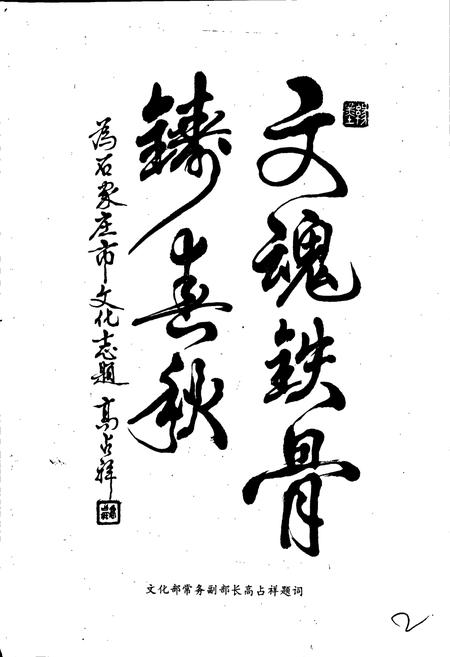 文魂铁骨
鑄春秋
为石家庄市文化志题 高占祥
文化部常务副部长高占祥题词
2